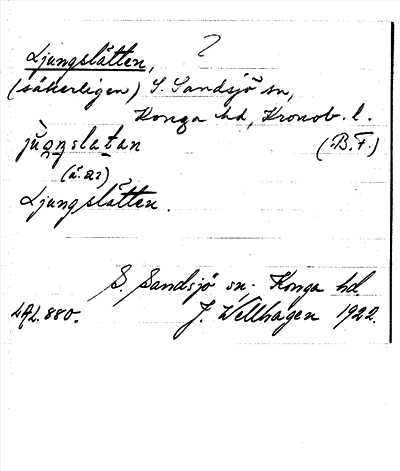 ?
Ljungslätten,
(säkerligen) S. Sandsjö sn,
Konga hd, Kronob. l.
juŋslatan (B.F.)
Ljungslätten.
S. Sandsjö sn. Konga hd.
LAL.880. J. Wellhagen 1922.